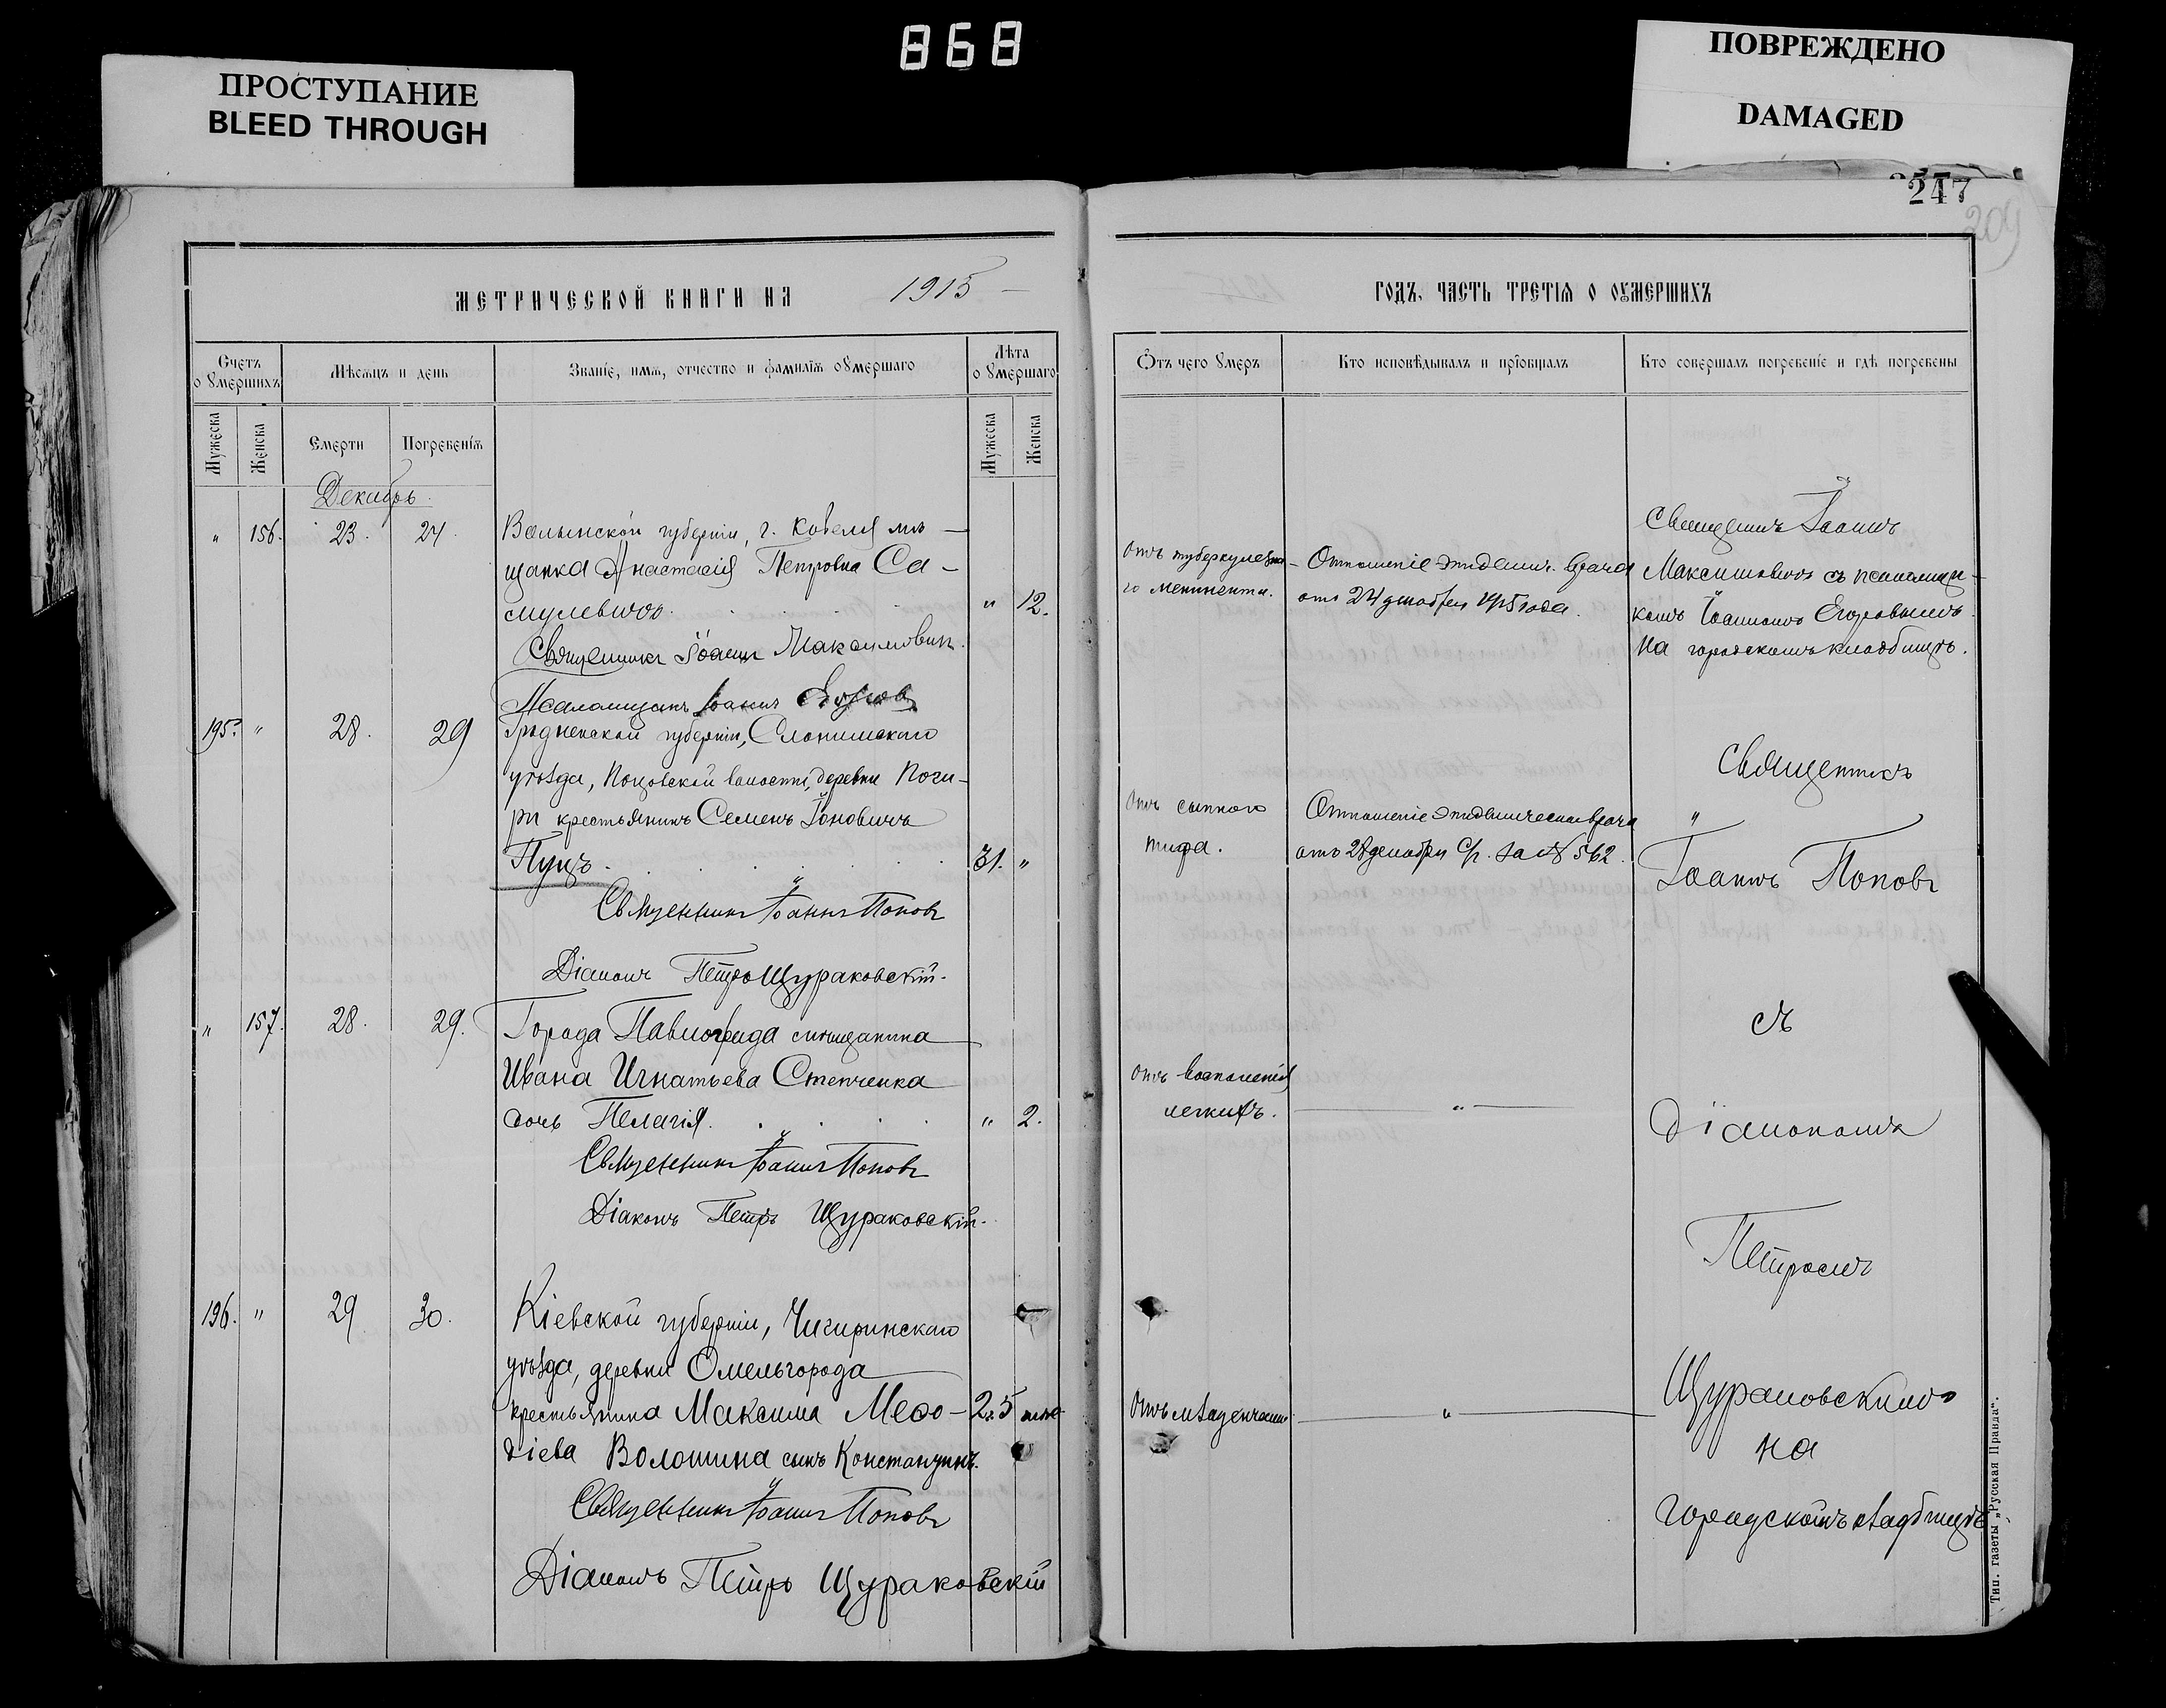 868
ПРОСТУПАНИЕ
BLEED THROUGH
ПОВРЕЖДЕНО
DAMAGED
247
209
МЕТРИЧЕСКОЙ КНИГИ НА 1915
Счетъ оумершихъ
Мѣсяцъ и день
Званіе, имя, отчество и фамилія оумершаго
Лѣта оумершаго
Мужеска
Женска
Смерти
Погребенія
Мужеска
Женска
Декабрь
" 156. 23. 24.
Волынской губерніи, г. Ковеля мѣ-
щанка Анастасія Петровна Са-
мулевичъ. " 12.
Священникъ Іоаннъ Максимовичъ.
Псаломщикъ Іоаннъ Егоровъ
195. " 28. 29
Гродненской губерніи, Слонимскаго
уѣзда, волости, деревни Поги-
ри крестьянинъ Семенъ Іоновичъ
Пуцъ. 31. "
Священникъ Іоаннъ Поповъ
Діаконъ Петръ Щураковскій.
" 157. 28. 29.
Города Павлограда мѣщанина
Ивана Игнатьева Степченка
дочь Пелагія. " 2.
Священникъ Іоаннъ Поповъ
Діаконъ Петръ Щураковскій.
196. " 29 30.
Кіевской губерніи, Чигиринскаго
уѣзда, деревни Омельгорода
крестьянина Максима Меѳо-
діева Волошина сынъ Константинъ.
Священникъ Іоаннъ Поповъ
Діаконъ Петръ Щураковскій
ГОДЪ, ЧАСТЬ ТРЕТІЯ О ОУМЕРШИХЪ
Отъ чего умеръ
Кто исповѣдывалъ и пріобщалъ
Кто совершалъ погребеніе и гдѣ погребены
отъ туберкулезна-
го менингита.
Отношеніе эпидемич. врача
отъ 24 декабря 1915 года.
Священникъ Іоаннъ
Максимовичъ съ псаломщи-
комъ Іоанномъ Егоровымъ
на городскомъ кладбищѣ.
Отъ сыпного
тифа.
Отношеніе эпидемическ. врача
отъ 28 декабря с/г. за № 562.
Священникъ
Іоаннъ Поповъ
съ
Діакономъ
Петромъ
Щураковскимъ
на
городскомъ кладбищѣ
отъ воспаленія
легкихъ. "
Отъ младенческой "
Тип. газеты „Русская Правда“.